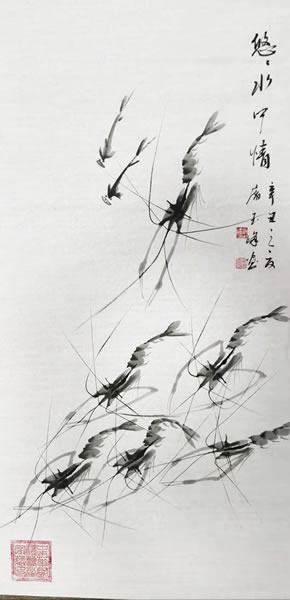 悠〻水中情
辛丑之夏
玉峰画